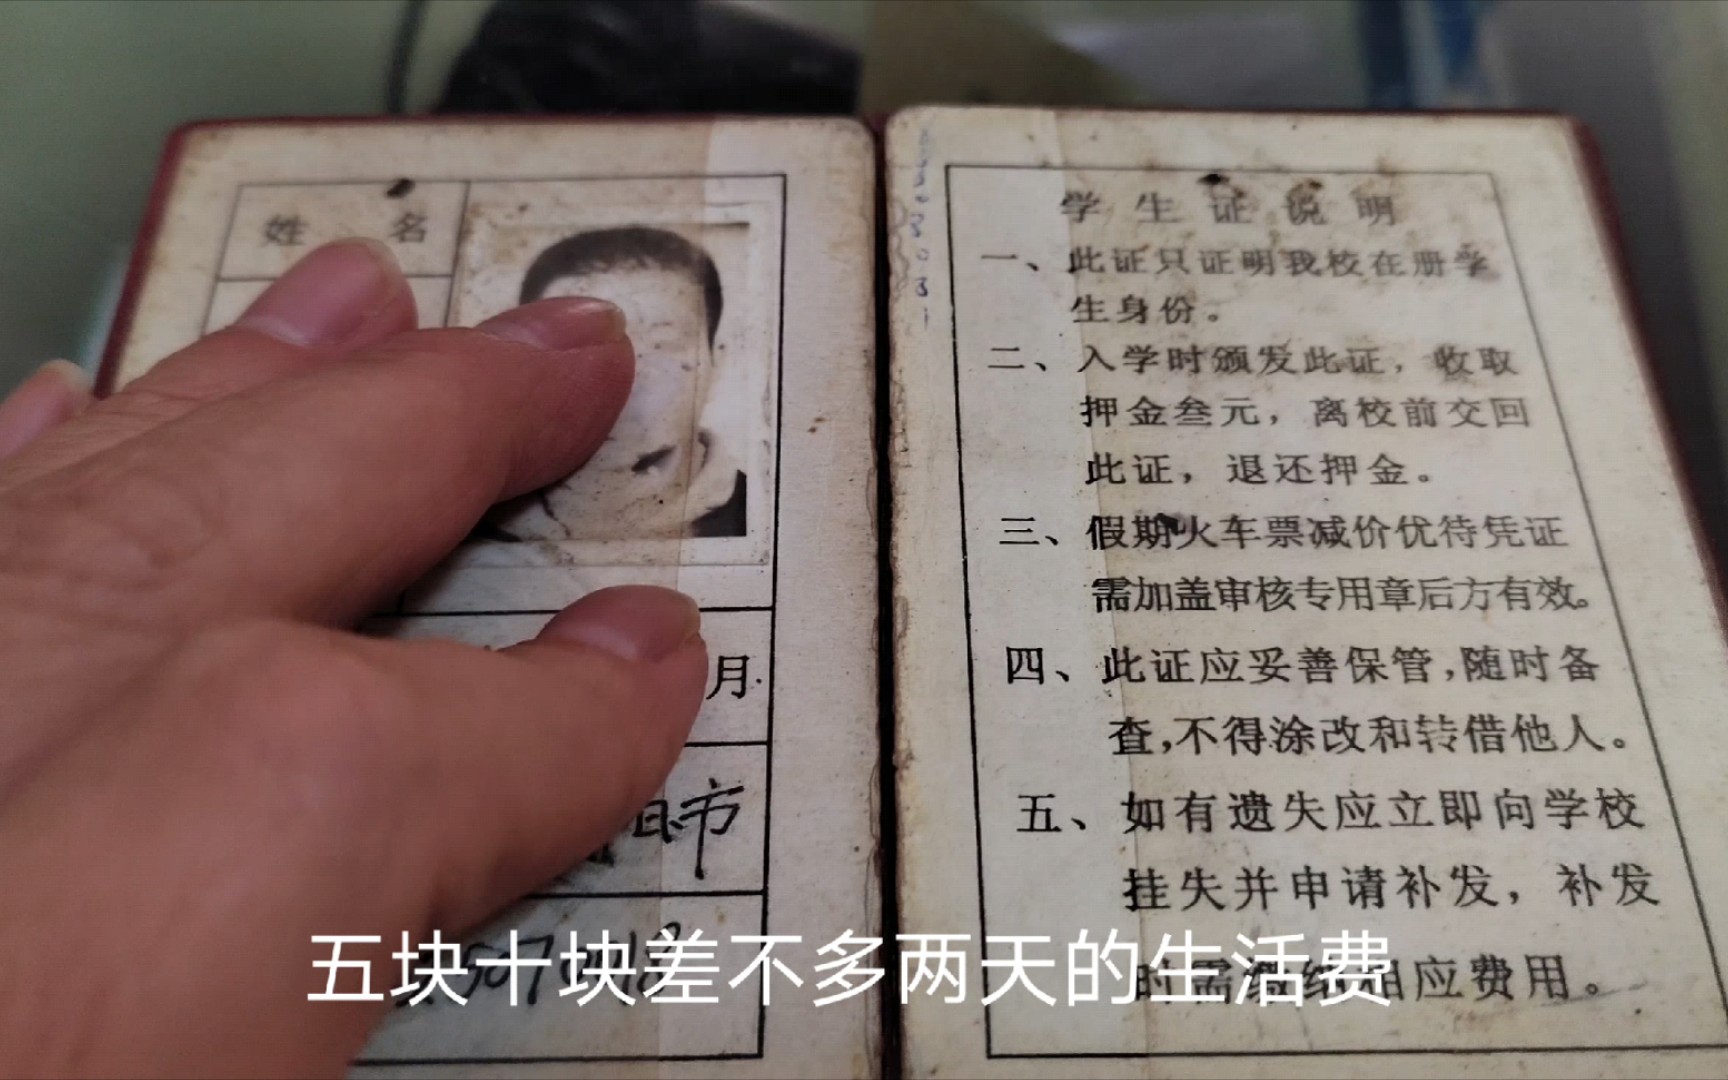 姓 名
月
市
学生证说明
一、此证只证明我校在册学
生身份。
二、入学时颁发此证，收取
押金叁元，离校前交回
此证，退还押金。
三、假期火车票减价优待凭证
需加盖审核专用章后方有效。
四、此证应妥善保管，随时备
查，不得涂改和转借他人。
五、如有遗失应立即向学校
挂失并申请补发，补发
时需缴纳相应费用。
五块十块差不多两天的生活费